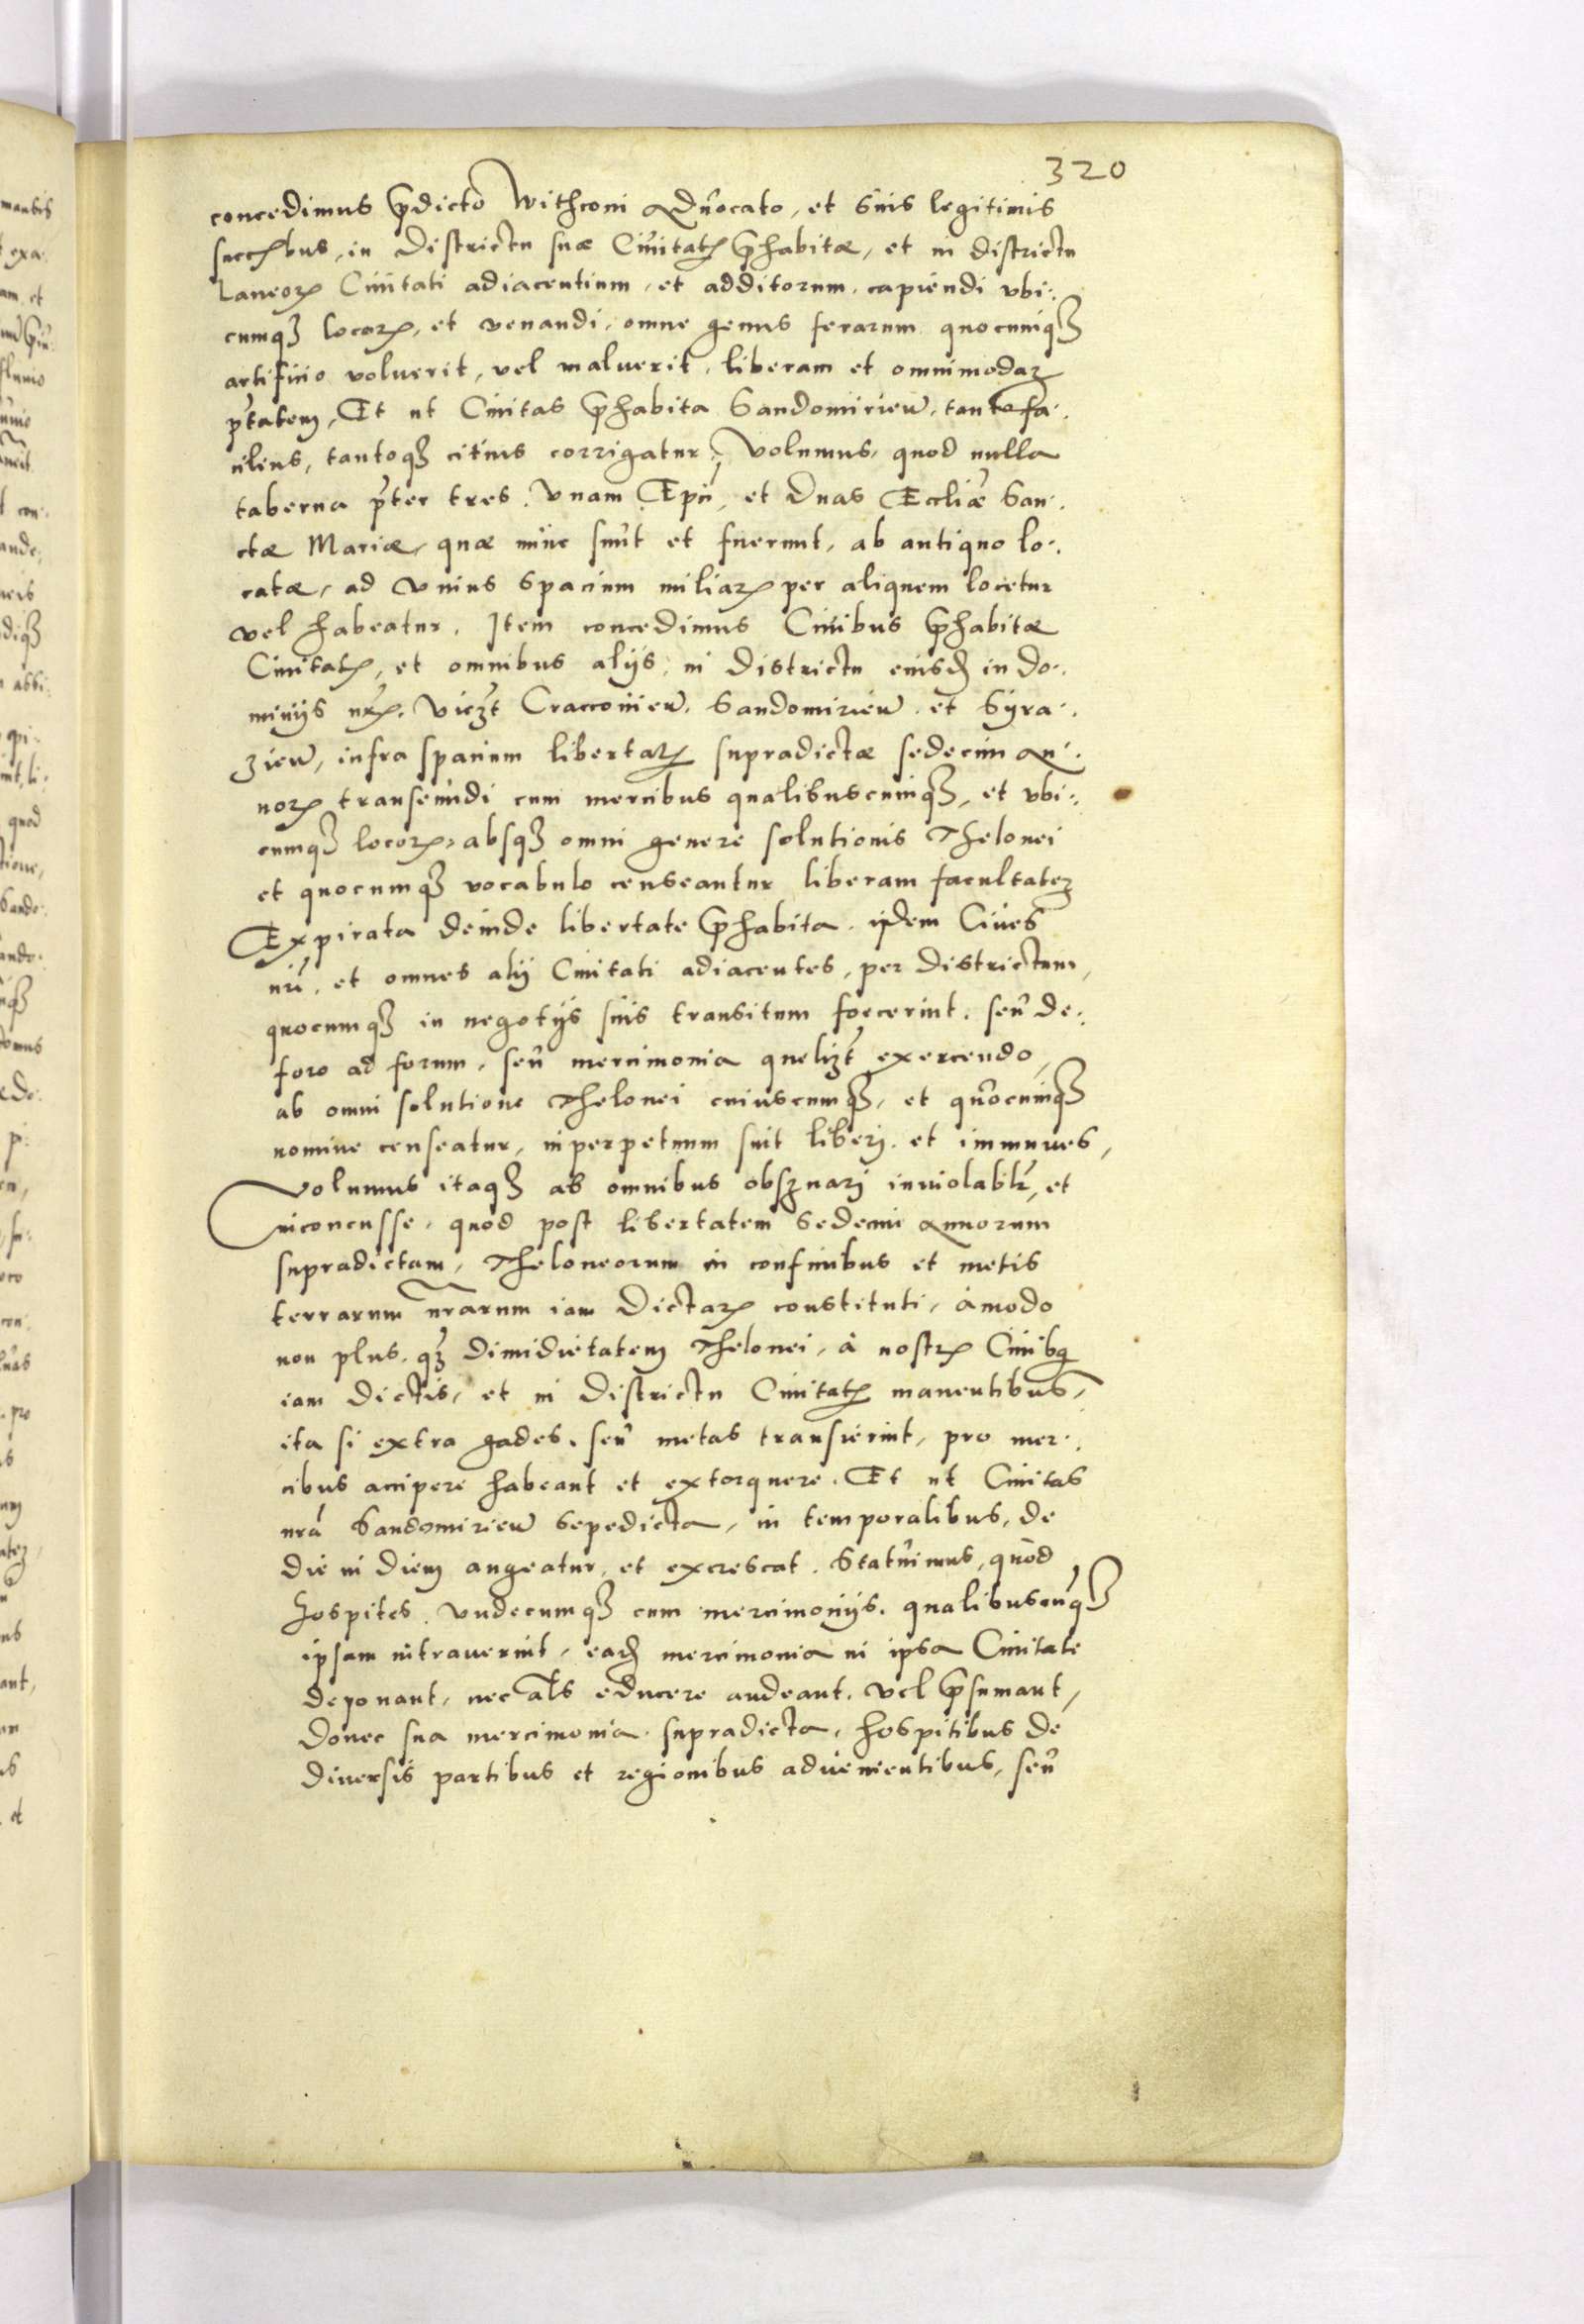 320
concedimus p̄dicto Withconi Aduocato, et suis legitimis
succ̄ribus, in districtu suæ Ciuitatꝭ p̄habitæ, et in districtu
Laneoꝝ Ciuitati adiacentium, et additorum, capiendi vbi:
cumqꝫ locoꝝ, et venandi, omne genus ferarum quocumqꝫ
artificio voluerit, vel maluerit, liberam et omnimodaꝫ
p̄tatem, Et ut Ciuitas p̄habita Sandomirien̄, tanto fa:
cilius, tantoqꝫ citius corrigatur, Volumus, quod nulla
taberna p̄ter tres, Vnam Ep̄i, et duas Eccliæ San:
ctæ Mariæ, quæ nunc sunt et fuerunt, ab antiquo lo:
catæ, ad vnius spacium miliaꝝ per aliquem locetur
vel habeatur. Item concedimus Ciuibus p̄habitæ
Ciuitatꝭ, et omnibus alijs, in districtu eiusd̄ in do:
minijs nr̄ꝭ, vicꝫt Cracouien̄, Sandomirien̄, et Syra:
zien̄, infra spacium libertatꝭ supradictæ sedecim An:
noꝝ transeundi cum mercibus qualibuscumqꝫ, et vbi:
cumqꝫ locoꝝ, absqꝫ omni genere solutionis Thelonei
et quocumqꝫ vocabulo censeantur liberam facultateꝫ
Expirata deinde libertate p̄habita, ijdem Ciues
nr̄i, et omnes alij Ciuitati adiacentes, per districtum,
quocumqꝫ in negotijs suis transitum foecerint, seu de:
foro ad forum, seu mercimonia quelicꝫt exercendo,
ab omni solutione Thelonei cuiuscumqꝫ, et quocumqꝫ
nomine censeatur, inperpetuum sint liberi, et immunes,
Volumus itaqꝫ ab omnibus obseruari inuiolabilr̄, et
inconcusse, quod post libertatem sedecim Annorum
supradictam, Theloneorum in confinibus et metis
terrarum nr̄arum iam dictaꝝ constituti, àmodo
non plus, qꝫ dimidietatem Thelonei, à nostrꝭ Ciuibꝫ
iam dictis, et in districtu Ciuitatꝭ manentibus,
ita si extra gades, seu metas transierint, pro mer:
cibus accipere habeant et extorquere. Et ut Ciuitas
nr̄a Sandomirien̄ sepedicta, in temporalibus, de
die in diem augeatur, et excrescat. Statuimus, quod
hospites vndecumqꝫ cum mercimonijs, qualibuscūqꝫ
ipsam intrauerint, ead̄ mercimonia in ipsa Ciuitate
deponant, nec al̄s educere audeant, vel p̄sumant,
donec sua mercimonia supradicta, hospitibus de
diuersis partibus et regionibus aduenientibus, seu